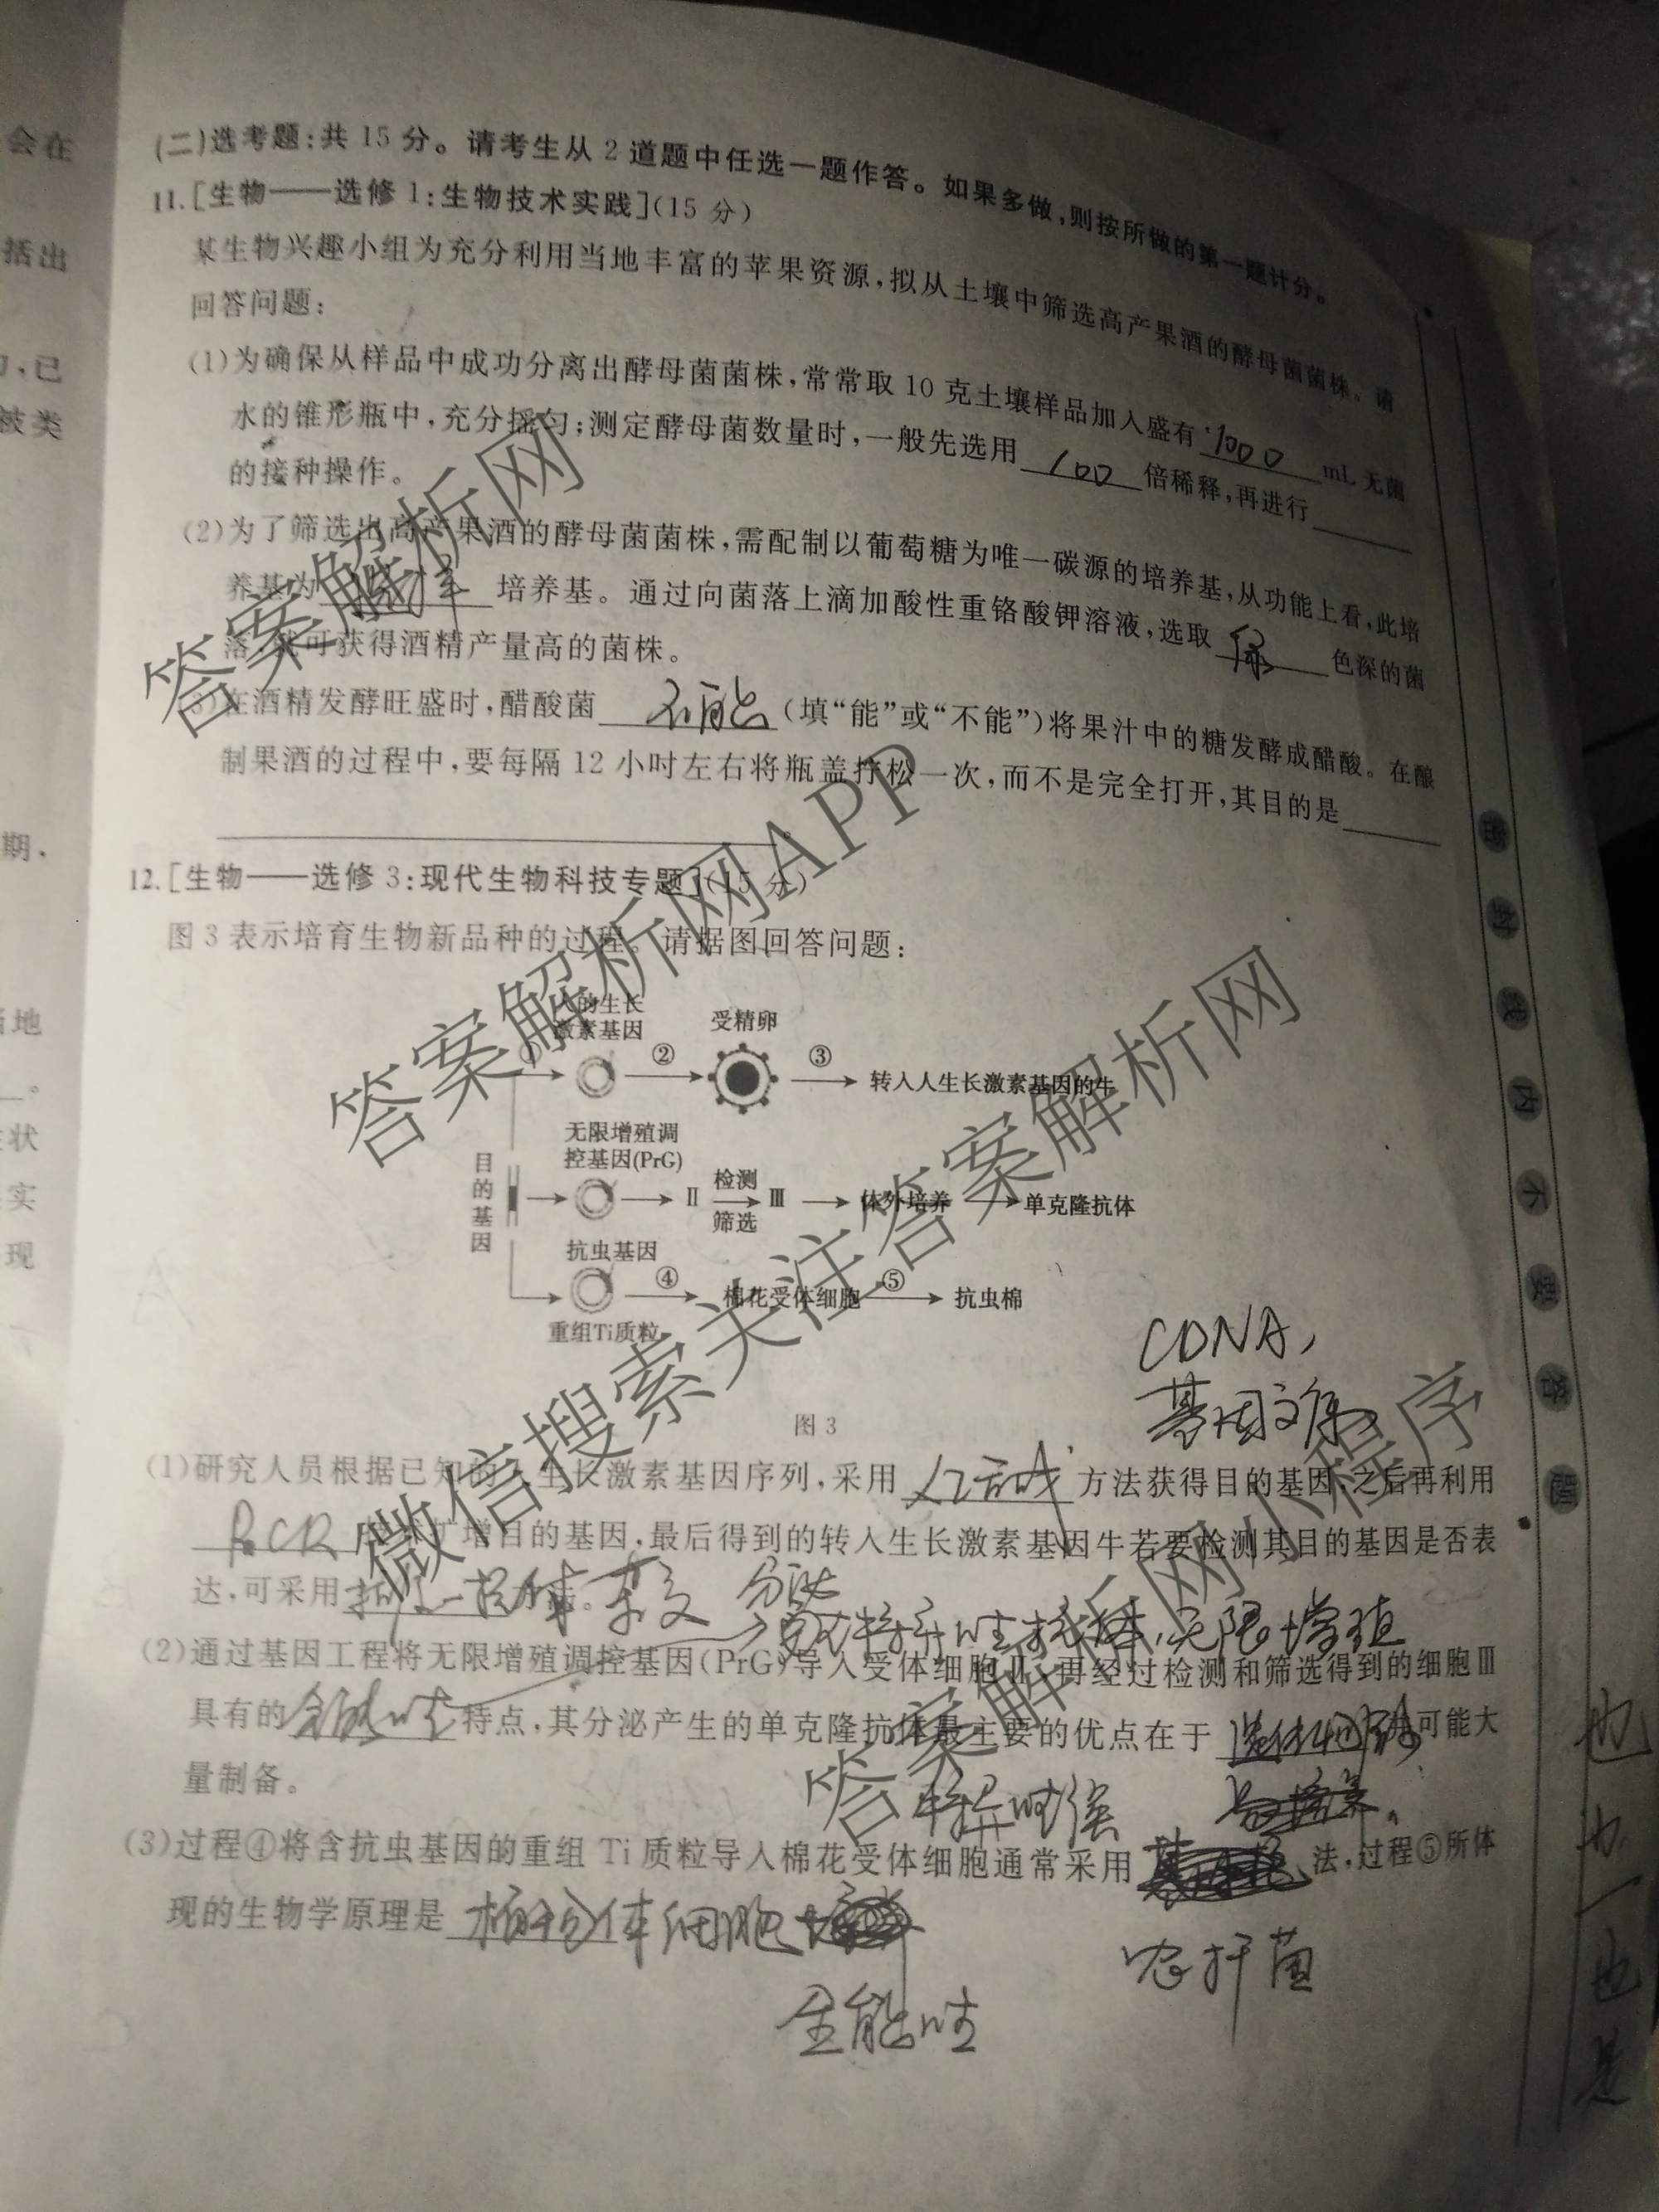 会在
括出
,已
被类
期.
地
状
实
现
(二)选考题:共 15 分。请考生从 2 道题中任选一题作答。如果多做,则按所做的第一题计分。
11.[生物——选修 1:生物技术实践](15 分)
某生物兴趣小组为充分利用当地丰富的苹果资源,拟从土壤中筛选高产果酒的酵母菌菌株。请
回答问题:
(1)为确保从样品中成功分离出酵母菌菌株,常常取 10 克土壤样品加入盛有 1000 mL 无菌
水的锥形瓶中,充分摇匀;测定酵母菌数量时,一般先选用 100 倍稀释,再进行
的接种操作。
(2)为了筛选出高产果酒的酵母菌菌株,需配制以葡萄糖为唯一碳源的培养基,从功能上看,此培
养基为 选择 培养基。通过向菌落上滴加酸性重铬酸钾溶液,选取 绿 色深的菌
落,就可获得酒精产量高的菌株。
(3)在酒精发酵旺盛时,醋酸菌 不能 (填“能”或“不能”)将果汁中的糖发酵成醋酸。在酿
制果酒的过程中,要每隔 12 小时左右将瓶盖拧松一次,而不是完全打开,其目的是
。
12.[生物——选修 3:现代生物科技专题](15 分)
图 3 表示培育生物新品种的过程。请据图回答问题:
人的生长
激素基因
受精卵
① ② ③
转入人生长激素基因的牛
无限增殖调
控基因(PrG)
目的基因
Ⅱ 检测 筛选 Ⅲ 体外培养 单克隆抗体
抗虫基因
④ 棉花受体细胞 ⑤ 抗虫棉
重组Ti质粒
图 3
CDNA,
基因文库
(1)研究人员根据已知的人生长激素基因序列,采用 人工合成 方法获得目的基因,之后再利用
PCR 技术扩增目的基因,最后得到的转入生长激素基因牛若要检测其目的基因是否表
达,可采用 抗原—抗体杂交 方法。
分泌特异性抗体,无限增殖
(2)通过基因工程将无限增殖调控基因(PrG)导入受体细胞Ⅱ,再经过检测和筛选得到的细胞Ⅲ
具有的 特点,其分泌产生的单克隆抗体最主要的优点在于 并可能大
量制备。
特异性强
(3)过程④将含抗虫基因的重组 Ti 质粒导入棉花受体细胞通常采用 法,过程⑤所体
现的生物学原理是 植物体细胞
农杆菌
全能性
密封线内不要答题
答案解析网
答案解析网APP
微信搜索关注答案解析网
答案解析网小程序